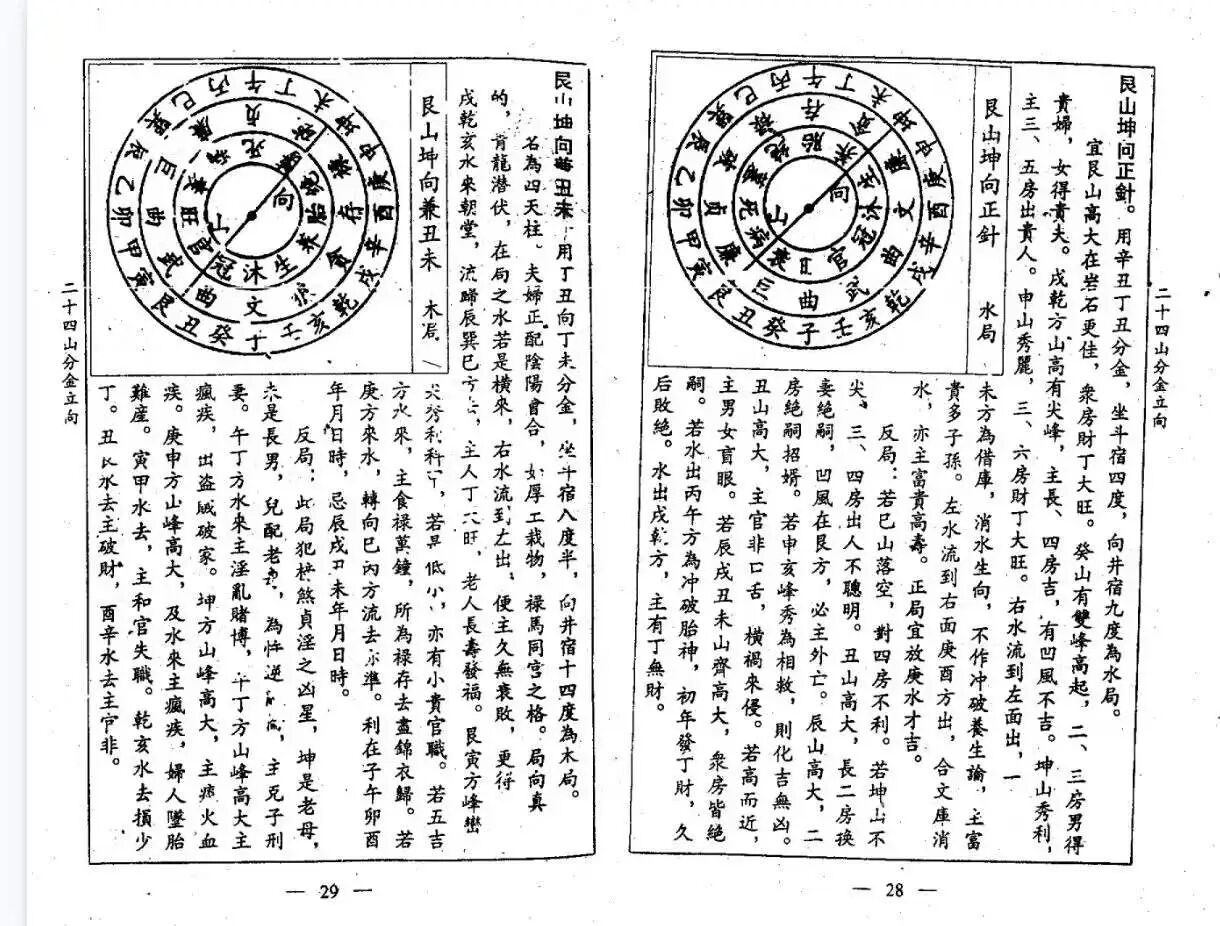 二十四山分金立向
艮山坤向正針。用辛丑丁丑分金，坐斗宿四度，向井宿九度為水局。
宜艮山高大在岩石更佳，衆房財丁大旺。癸山有雙峰高起，二、三房男得
貴婦，女得貴夫。戌乾方山高有尖峰，主長、四房吉，有凹風不吉。坤山秀利，
主三、五房出貴人。申山秀麗，三、六房財丁大旺。右水流到左面出，一
未方為借庫，消水生向，不作冲破養生論，主富
貴多子孫。左水流到右面庚酉方出，合文庫消
水，亦主富貴高壽。正局宜放庚水才吉。
反局：若巳山落空，對四房不利。若坤山不
尖，三、四房出人不聰明。丑山高大，長二房換
妻絶嗣，凹風在艮方，必主外亡。辰山高大，二
房絶嗣招婿。若申亥峰秀為相救，則化吉無凶。
丑山高大，主官非口舌，橫禍來侵。若高而近，
主男女盲眼。若辰戌丑未山齊高大，衆房皆絶
嗣。若水出丙午方為冲破胎神，初年發丁財，久
后敗絶。水出戌乾方，主有丁無財。
艮山坤向正針 水局
向
胎 養 生 沐 冠 官 旺 衰 病 死 墓 絶
存 貪 文 曲 武 曲 巨 廉 貞 破 祿
午 丁 未 坤 申 庚 酉 辛 戌 乾 亥 壬 子 癸 丑 艮 寅 甲 卯 乙 辰 巽 巳 丙
— 28 —
艮山坤向兼丑未，用丁丑向丁未分金，坐斗宿八度半，向井宿十四度為木局。
名為四天柱、夫婦正配陰陽會合，如厚工栽物，禄馬同宮之格。局向真
的，青龍潜伏，在局之水若是橫來，右水流到左出，便主久無衰敗，更得
戌乾亥水來朝堂，流歸辰巽巳方去，主人丁大旺，老人長壽發福。艮寅方峰巒
尖秀利科甲，若是低小，亦有小貴官職。若五吉
方水來，主食禄萬鐘，所為禄存去盡錦衣歸。若
庚方來水，轉向巳丙方流去亦準。利在子午卯酉
年月日時，忌辰戌丑未年月日時。
反局：此局犯 煞貞淫之凶星，坤是老母，
是長男，兒配老 ，為忤逆 ，主克子刑
妻。午丁方水來主淫亂賭博，午丁方山峰高大主
瘋疾，出盗贼破家。坤方山峰高大，主 火血
疾。庚申方山峰高大，及水來主瘋疾，婦人墜胎
難産。寅甲水去，主和官失職。乾亥水去損少
丁。丑艮水去主破財，酉辛水去主官非。
艮山坤向兼丑未 木局
向
死 墓 絶 胎 養 生 沐 冠 官 旺 衰 病
貞 祿 存 貪 文 曲 武 曲 巨 廉
午 丁 未 坤 申 庚 酉 辛 戌 乾 亥 壬 子 癸 丑 艮 寅 甲 卯 乙 辰 巽 巳 丙
二十四山分金立向
— 29 —